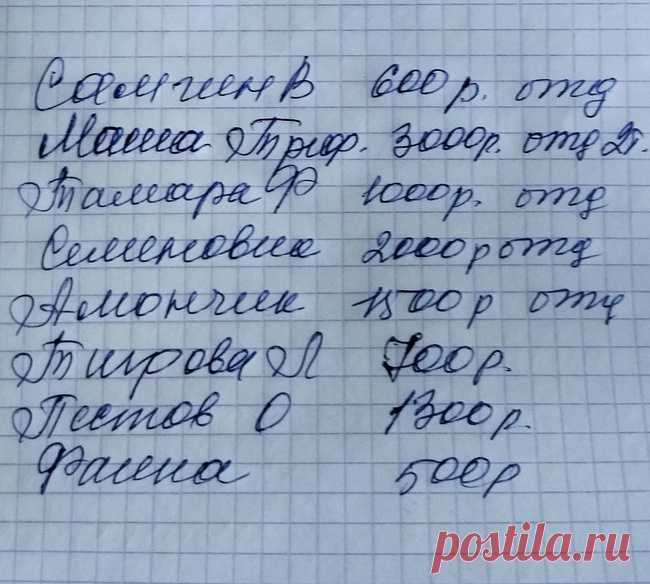 Самгин В 600р. отд
Маша Триф. 3000р. отд 2т.
Тамара Ф 1000р. отд
Семеновна 2000р отд
Амончик 1500р отд
Тигрова Л 700р.
Пестов О 1300р.
Фаина 500р
postila.ru